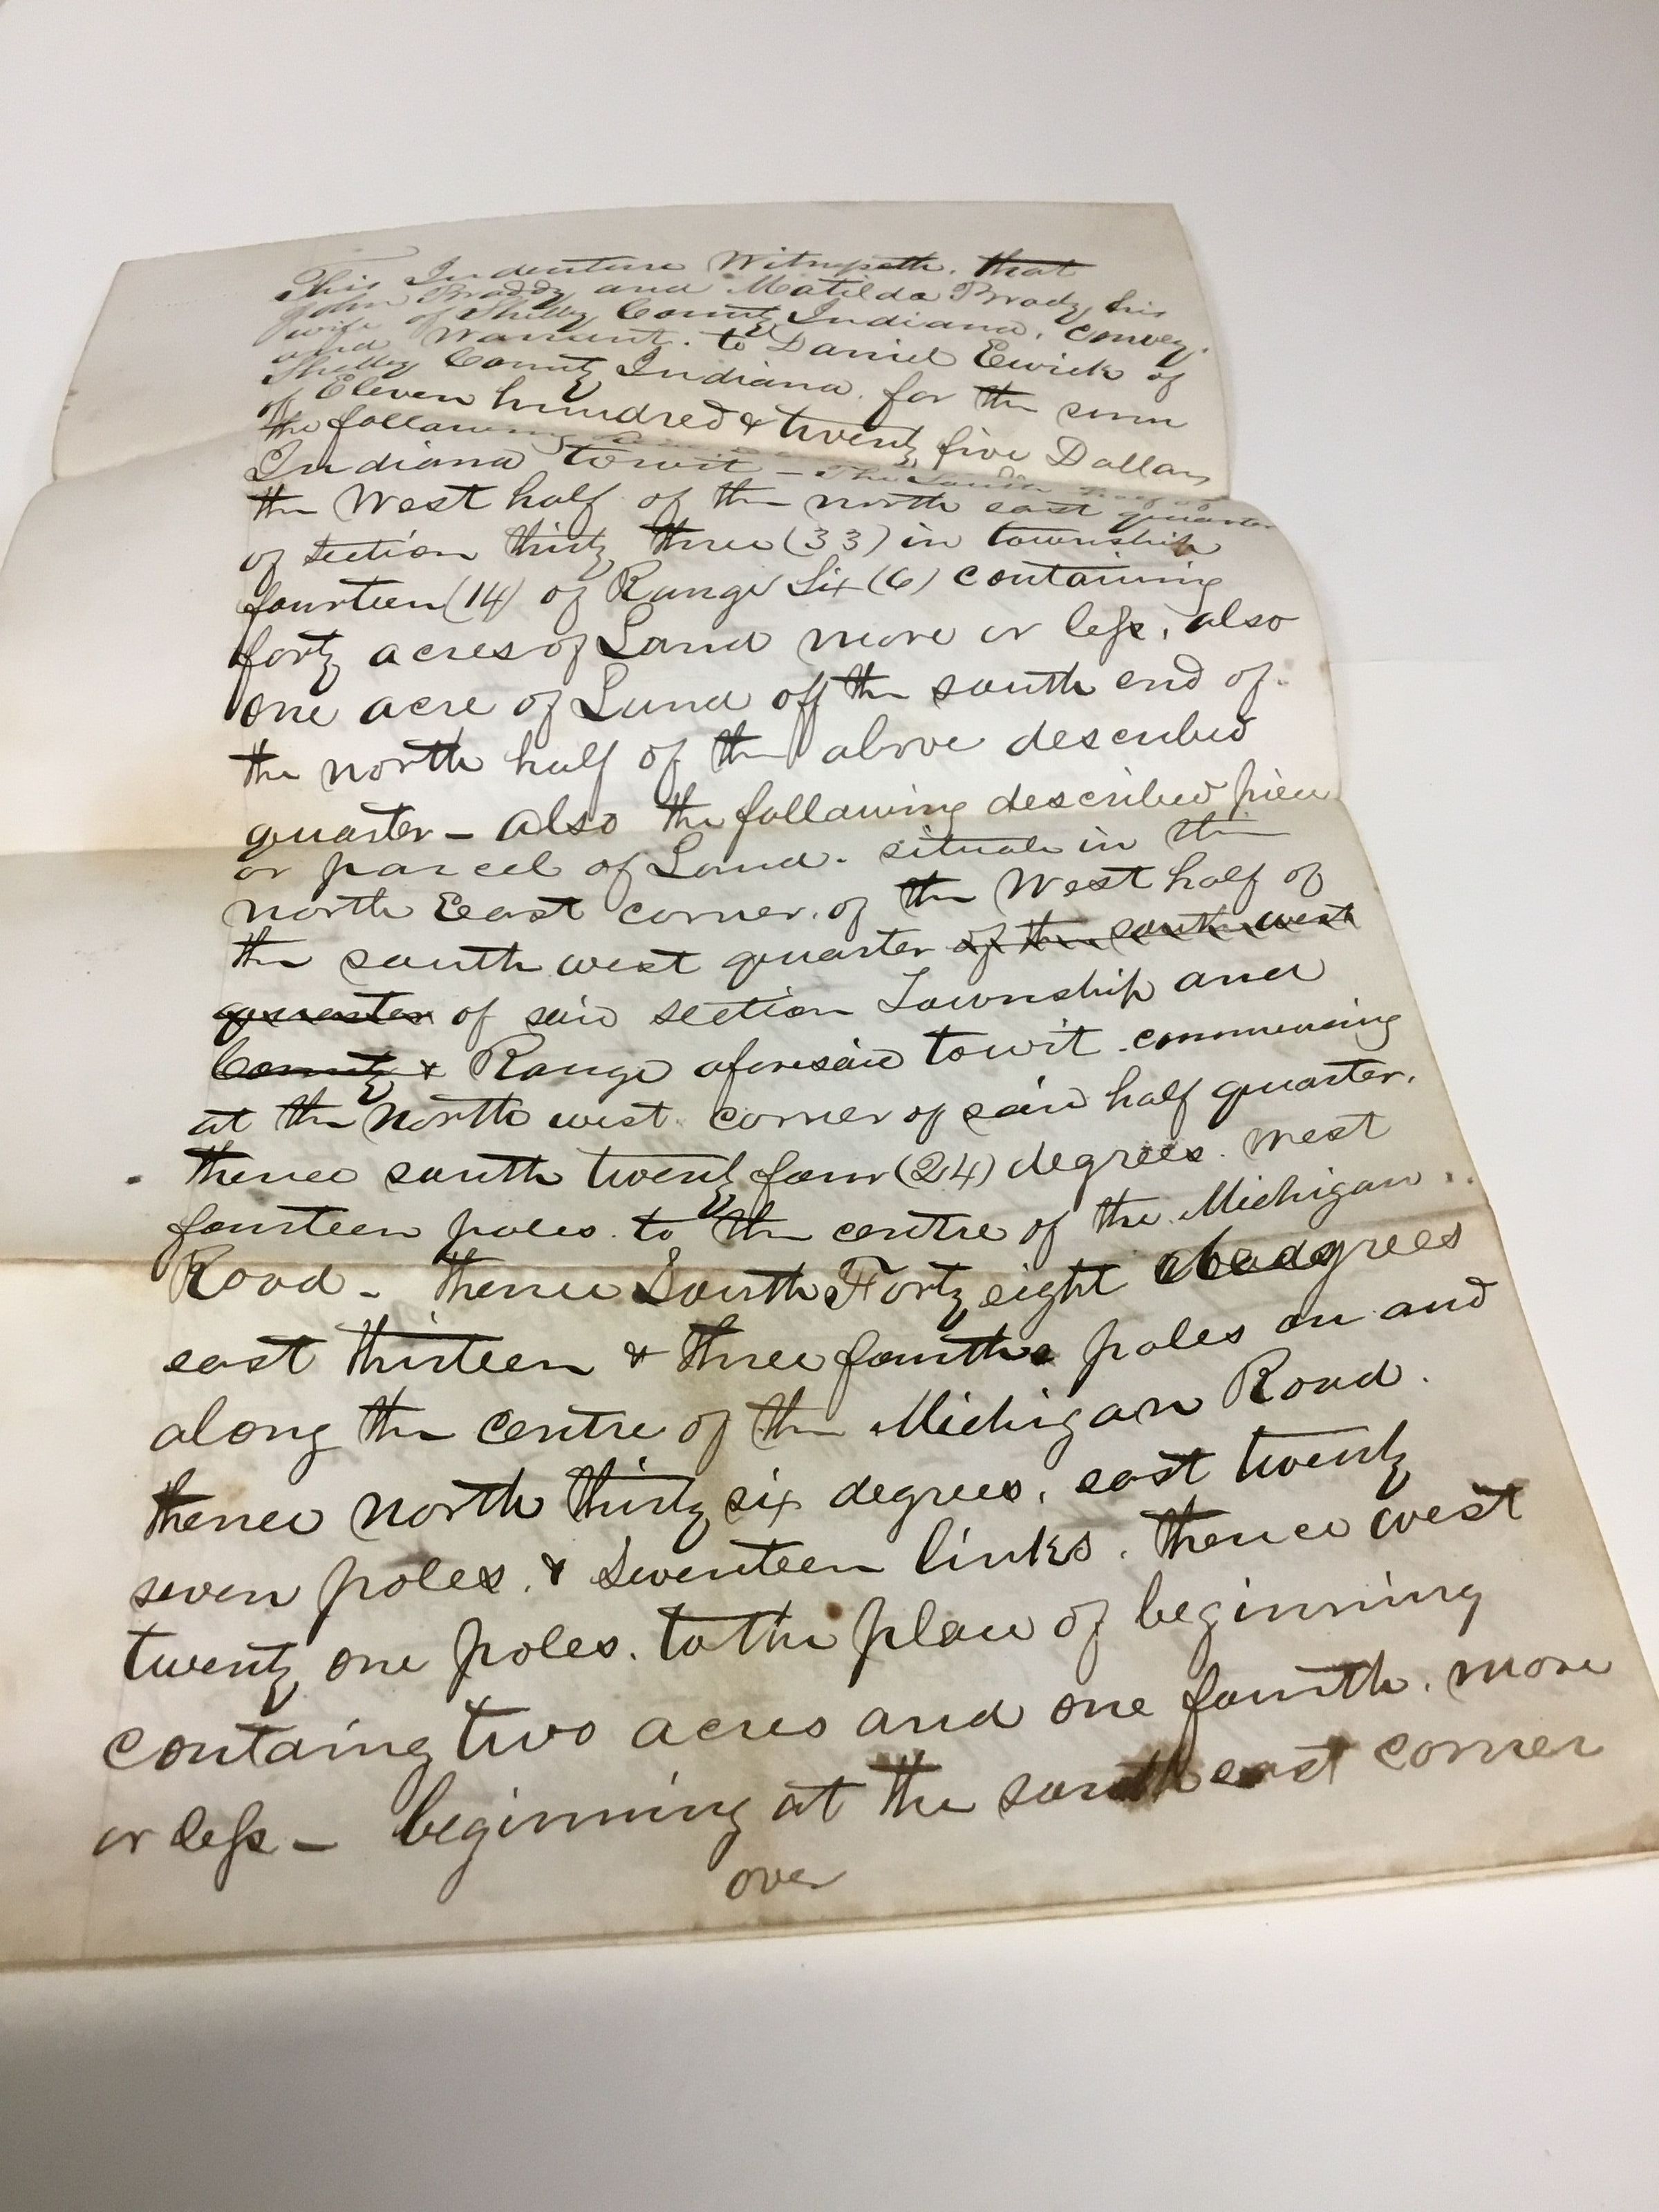 This Indenture Witnesseth. that
John Braddy and Matilda Brady, his
wife of Shelby County Indiana, convey.
and Warrant. to Daniel Ewick of
Shelby County Indiana. for the sum
of Eleven hundred & twenty five Dollars
the following
Indiana towit – The South half of
the West half of the north east quarter
of section thirty three (33) in township
fourteen (14) of Range Six (6) containing
forty acres of Land more or less, also
one acre of Land off the south end of
the north half of the above described
quarter – also the following described piece
or parcel of Land. situate in the
north East corner. of the West half of
the south west quarter of the south west
quarter of said section Township and
County & Range aforesaid towit. commencing
at the North west corner of said half quarter.
thence south twenty four (24) degrees. west
fourteen poles. to the centre of the Michigan
Road – thence South Forty eight degrees
east thirteen & three fourths poles on and
along the centre of the Michigan Road.
thence north thirty six degrees, east twenty
seven poles. & seventeen links. thence west
twenty one poles. to the place of beginning
containg two acres and one fourth. more
or less – beginning at the south east corner
over